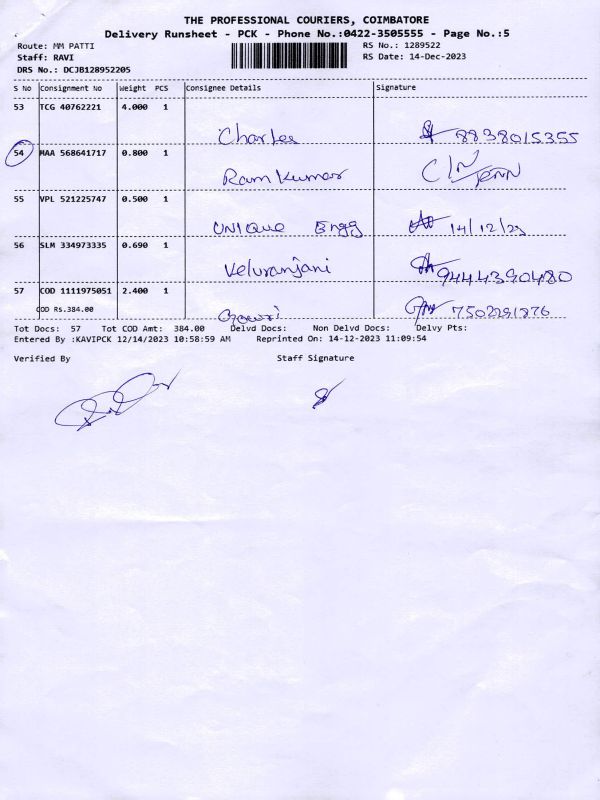 THE PROFESSIONAL COURIERS, COIMBATORE
Delivery Runsheet - PCK - Phone No.:0422-3505555 - Page No.:5
Route: MM PATTI RS No.: 1289522
Staff: RAVI RS Date: 14-Dec-2023
DRS No.: DCJB128952205
S No Consignment No Weight PCS Consignee Details Signature
53 TCG 40762221 4.000 1
Charlee 8838015355
54 MAA 568641717 0.800 1
Ramkumar
55 VPL 521225747 0.500 1
UNIQUE Engg 14/12/23
56 SLM 334973335 0.690 1
Veluranjani 9444390480
57 COD 1111975051 2.400 1
COD Rs.384.00
Gowri 7502291876
Tot Docs: 57 Tot COD Amt: 384.00 Delvd Docs: Non Delvd Docs: Delvy Pts:
Entered By :KAVIPCK 12/14/2023 10:58:59 AM Reprinted On: 14-12-2023 11:09:54
Verified By Staff Signature